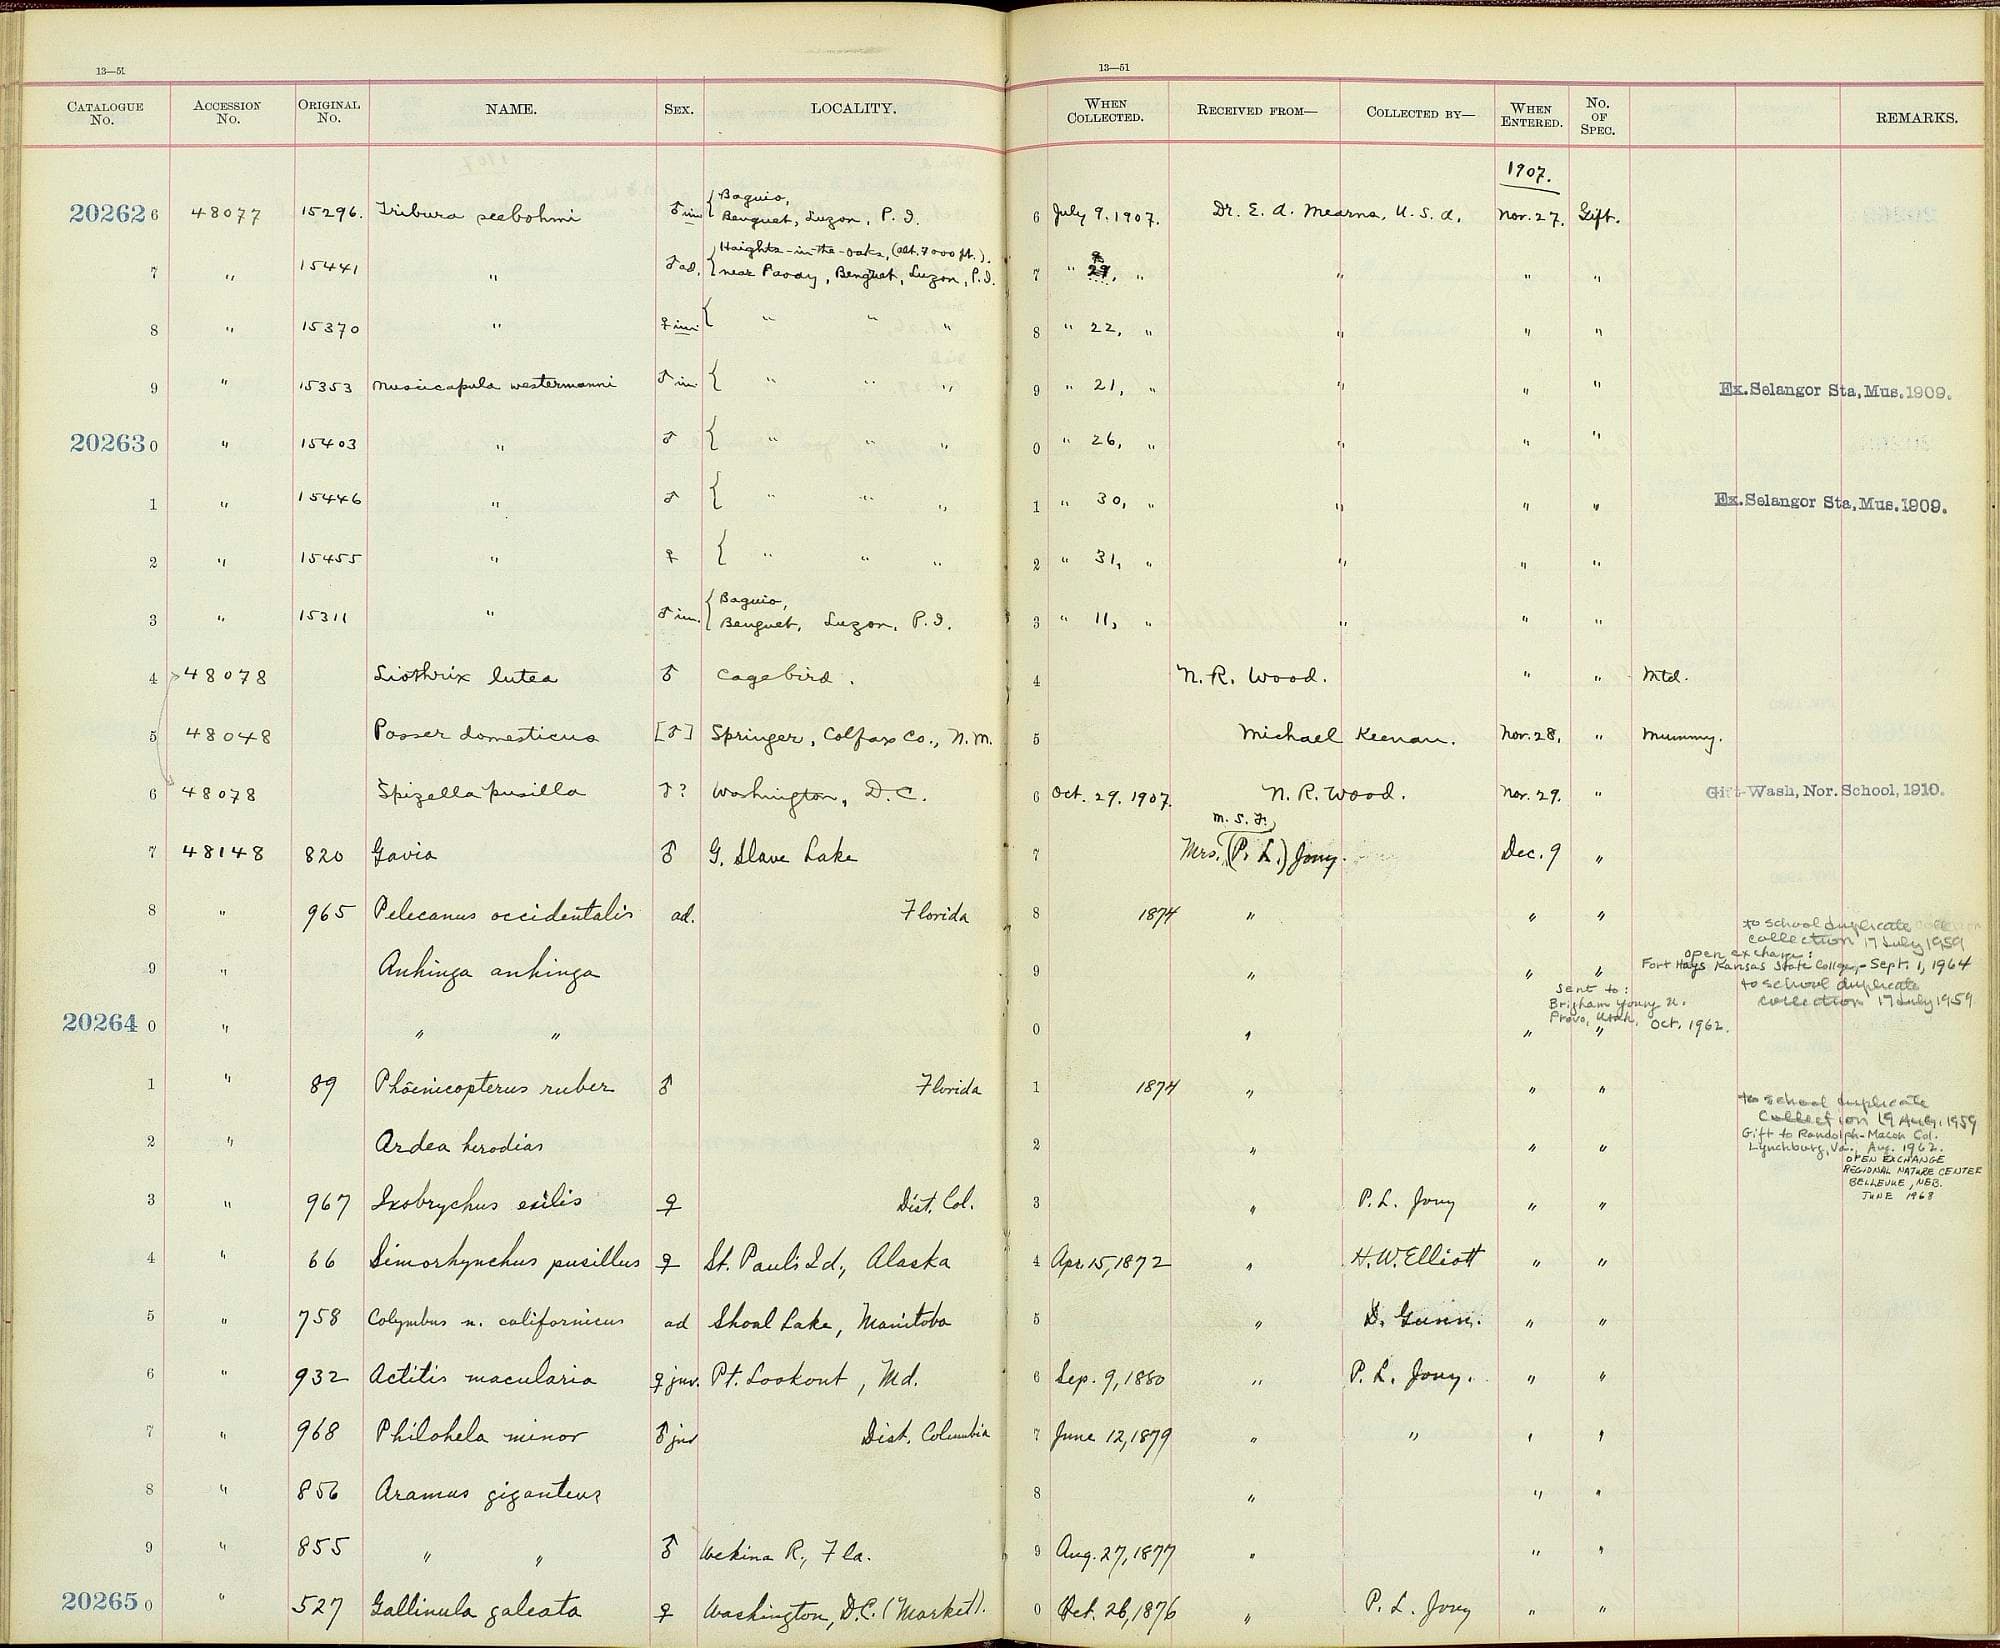 13—51
13—51
CATALOGUE No. ACCESSION No. ORIGINAL No. NAME. SEX. LOCALITY. WHEN COLLECTED. RECEIVED FROM— COLLECTED BY— WHEN ENTERED. No. OF SPEC. REMARKS.
1907.
202626 48077 15296. Tribura seebohmi ♂ im { Baguio, Benguet, Luzon, P. I. 6 July 9, 1907. Dr. E. A. Mearns, U. S. A. Nov. 27. Gift.
7 " 15441 " ♂ ad. { Haights-in-the-oaks, (alt. 7000 ft.). near Paoay, Benguet, Luzon, P. I. 7 " 29, " " " "
8 " 15370 " ♀ im { " " " 8 " 22, " " " "
9 " 15353 Muscicapula westermanni ♂ im { " " " 9 " 21, " " " " Ex. Selangor Sta, Mus. 1909.
202630 " 15403 " ♂ { " " " 0 " 26, " " " "
1 " 15446 " ♂ { " " " 1 " 30, " " " " Ex. Selangor Sta, Mus. 1909.
2 " 15455 " ♀ { " " " 2 " 31, " " " "
3 " 15311 " ♂ im. { Baguio, Benguet, Luzon, P. I. 3 " 11, " " " "
4 48078 Liothrix lutea ♂ Cagebird. 4 N. R. Wood. " " Mtd.
5 48048 Passer domesticus [♂] Springer, Colfax Co., N. M. 5 Michael Keenan. Nov. 28, " Mummy.
6 48078 Spizella pusilla ♂? Washington, D. C. 6 Oct. 29, 1907. N. R. Wood. Nov. 29. " Gift-Wash, Nor. School, 1910.
M. S. F.
7 48148 820 Gavia ♂ G. Slave Lake 7 Mrs. (P. L.) Jouy. Dec. 9 "
8 " 965 Pelecanus occidentalis ad. Florida 8 1874 " " "
to school duplicate
collection 17 July 1959
open exchange:
9 " Anhinga anhinga 9 " " " Fort Hays Kansas State College - Sept. 1, 1964
to school duplicate
collection 17 July 1959
sent to:
Brigham Young U.
Provo, Utah. Oct. 1962.
202640 " " " 0 " " "
1 " 89 Phoenicopterus ruber ♂ Florida 1 1874 " " "
to school duplicate
collection 19 Aug. 1959
2 " Ardea herodias 2 " " " Gift to Randolph-Macon Col.
Lynchburg, Va., Aug. 1962.
OPEN EXCHANGE
REGIONAL NATURE CENTER
BELLEVUE, NEB.
JUNE 1968
3 " 967 Ixobrychus exilis ♀ Dist. Col. 3 " P. L. Jouy " "
4 " 66 Simorhynchus pusillus ♀ St. Paul's Id., Alaska 4 Apr. 15, 1872 " H. W. Elliott " "
5 " 758 Colymbus n. californicus ad Shoal Lake, Manitoba 5 " D. Gunn. " "
6 " 932 Actitis macularia ♀ juv. Pt. Lookout, Md. 6 Sep. 9, 1880 " P. L. Jouy. " "
7 " 968 Philohela minor ♂ juv Dist. Columbia 7 June 12, 1879 " " " "
8 " 856 Aramus giganteus 8 " " "
9 " 855 " " ♂ Wekina R., Fla. 9 Aug. 27, 1877 " " "
202650 " 527 Gallinula galeata ♀ Washington, D.C. (Market). 0 Oct. 26, 1876 " P. L. Jouy " "